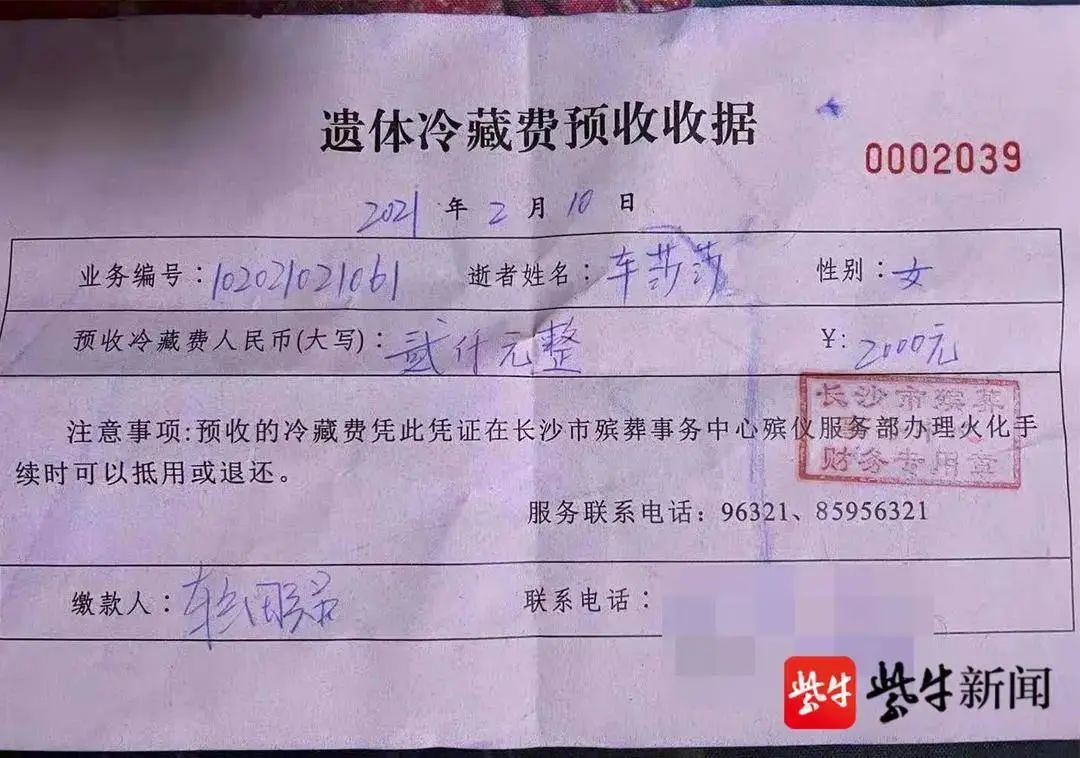 遗体冷藏费预收收据
0002039
2021年2月10日
业务编号：102021021061 逝者姓名：车莎莎 性别：女
预收冷藏费人民币(大写)：贰仟元整 ¥：2000元
注意事项:预收的冷藏费凭此凭证在长沙市殡葬事务中心殡仪服务部办理火化手
续时可以抵用或退还。
长沙市殡葬
财务专用章
服务联系电话：96321、85956321
缴款人：车
联系电话：
紫牛 紫牛新闻